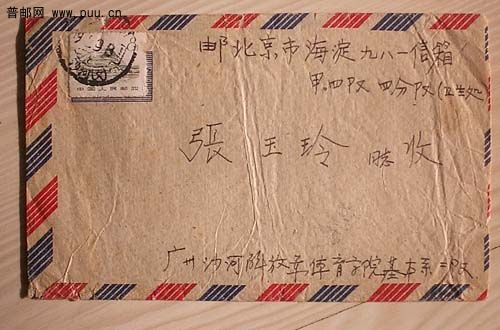 普邮网 www.puu.cn
中国人民邮政
邮北京市海淀九八一信箱
甲四队四分队(卫生处
張玉玲 同志 收
广州沙河解放军体育学院基本系二队